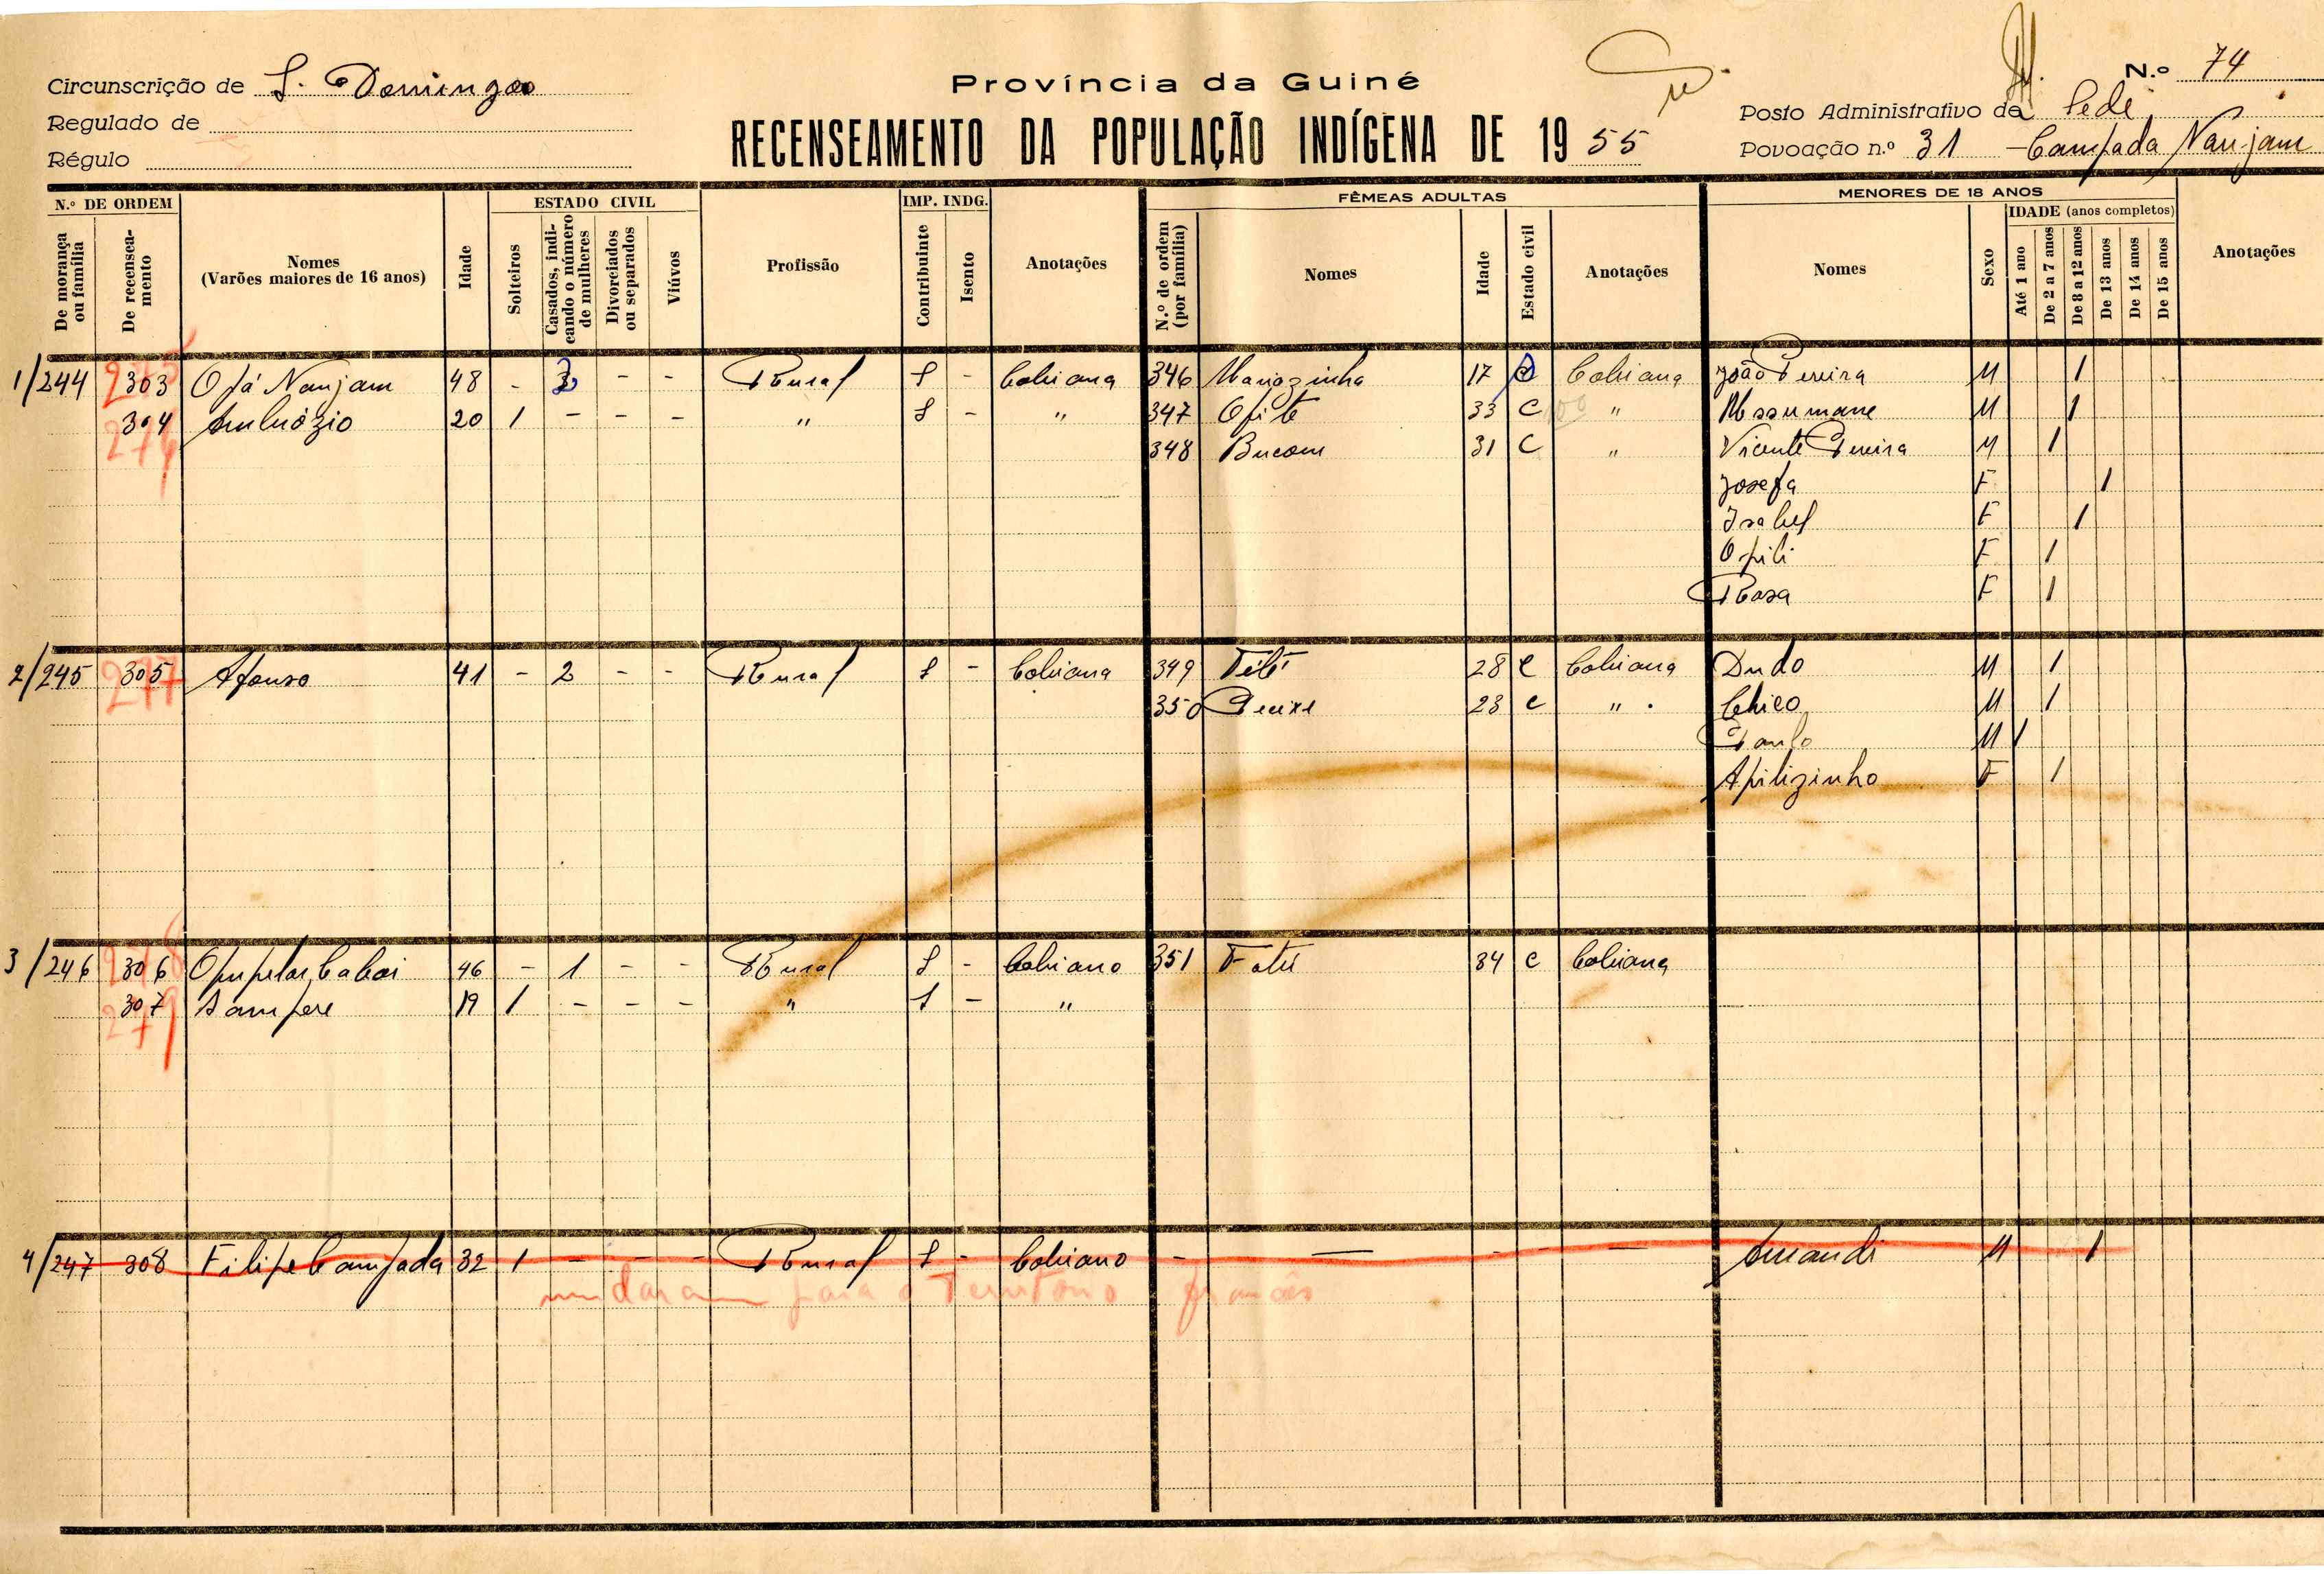 Circunscrição de S. Domingos
Regulado de
Régulo
Província da Guiné
RECENSEAMENTO DA POPULAÇÃO INDÍGENA DE 19 55
N.º 74
Posto Administrativo da Sede
Povoação n.º 31 - Campada Nanjam
N.º DE ORDEM
De morança ou família
De recenseamento
Nomes
(Varões maiores de 16 anos)
Idade
ESTADO CIVIL
Solteiros
Casados, indicando o número de mulheres
Divorciados ou separados
Viúvos
Profissão
IMP. INDG.
Contribuinte
Isento
Anotações
FÊMEAS ADULTAS
N.º de ordem (por família)
Nomes
Idade
Estado civil
Anotações
MENORES DE 18 ANOS
Nomes
Sexo
IDADE (anos completos)
Até 1 ano
De 2 a 7 anos
De 8 a 12 anos
De 13 anos
De 14 anos
De 15 anos
Anotações
1/244 303 Ofá Nanjam 48 - - - Rural 1 - Cobiana 346 Mariazinha 17 Cobiana João Pereira M 1
304 Ambrózio 20 1 - - - " 1 - " 347 Ofite 33 C " Assumane M 1
276
348 Bucom 31 C " Vicente Pereira M 1
Josefa F 1
Isabel F 1
Opili F 1
Rosa F 1
2/245 305 277 Afonso 41 - 2 - - Rural 1 - Cobiana 349 28 C Cobiana Dudo M 1
350 23 C " Chico M 1
Paulo M 1
Apilizinho F 1
3/246 306 278 46 - 1 - - Rural 1 - Cobiano 351 Fatú 34 C Cobiana
307 279 Sampere 19 1 - - - " 1 - "
4/247 308 Filipe Campada 32 1 - - - Rural 1 - Cobiano - — - - — Amandi M 1
mudaram para o Território francês